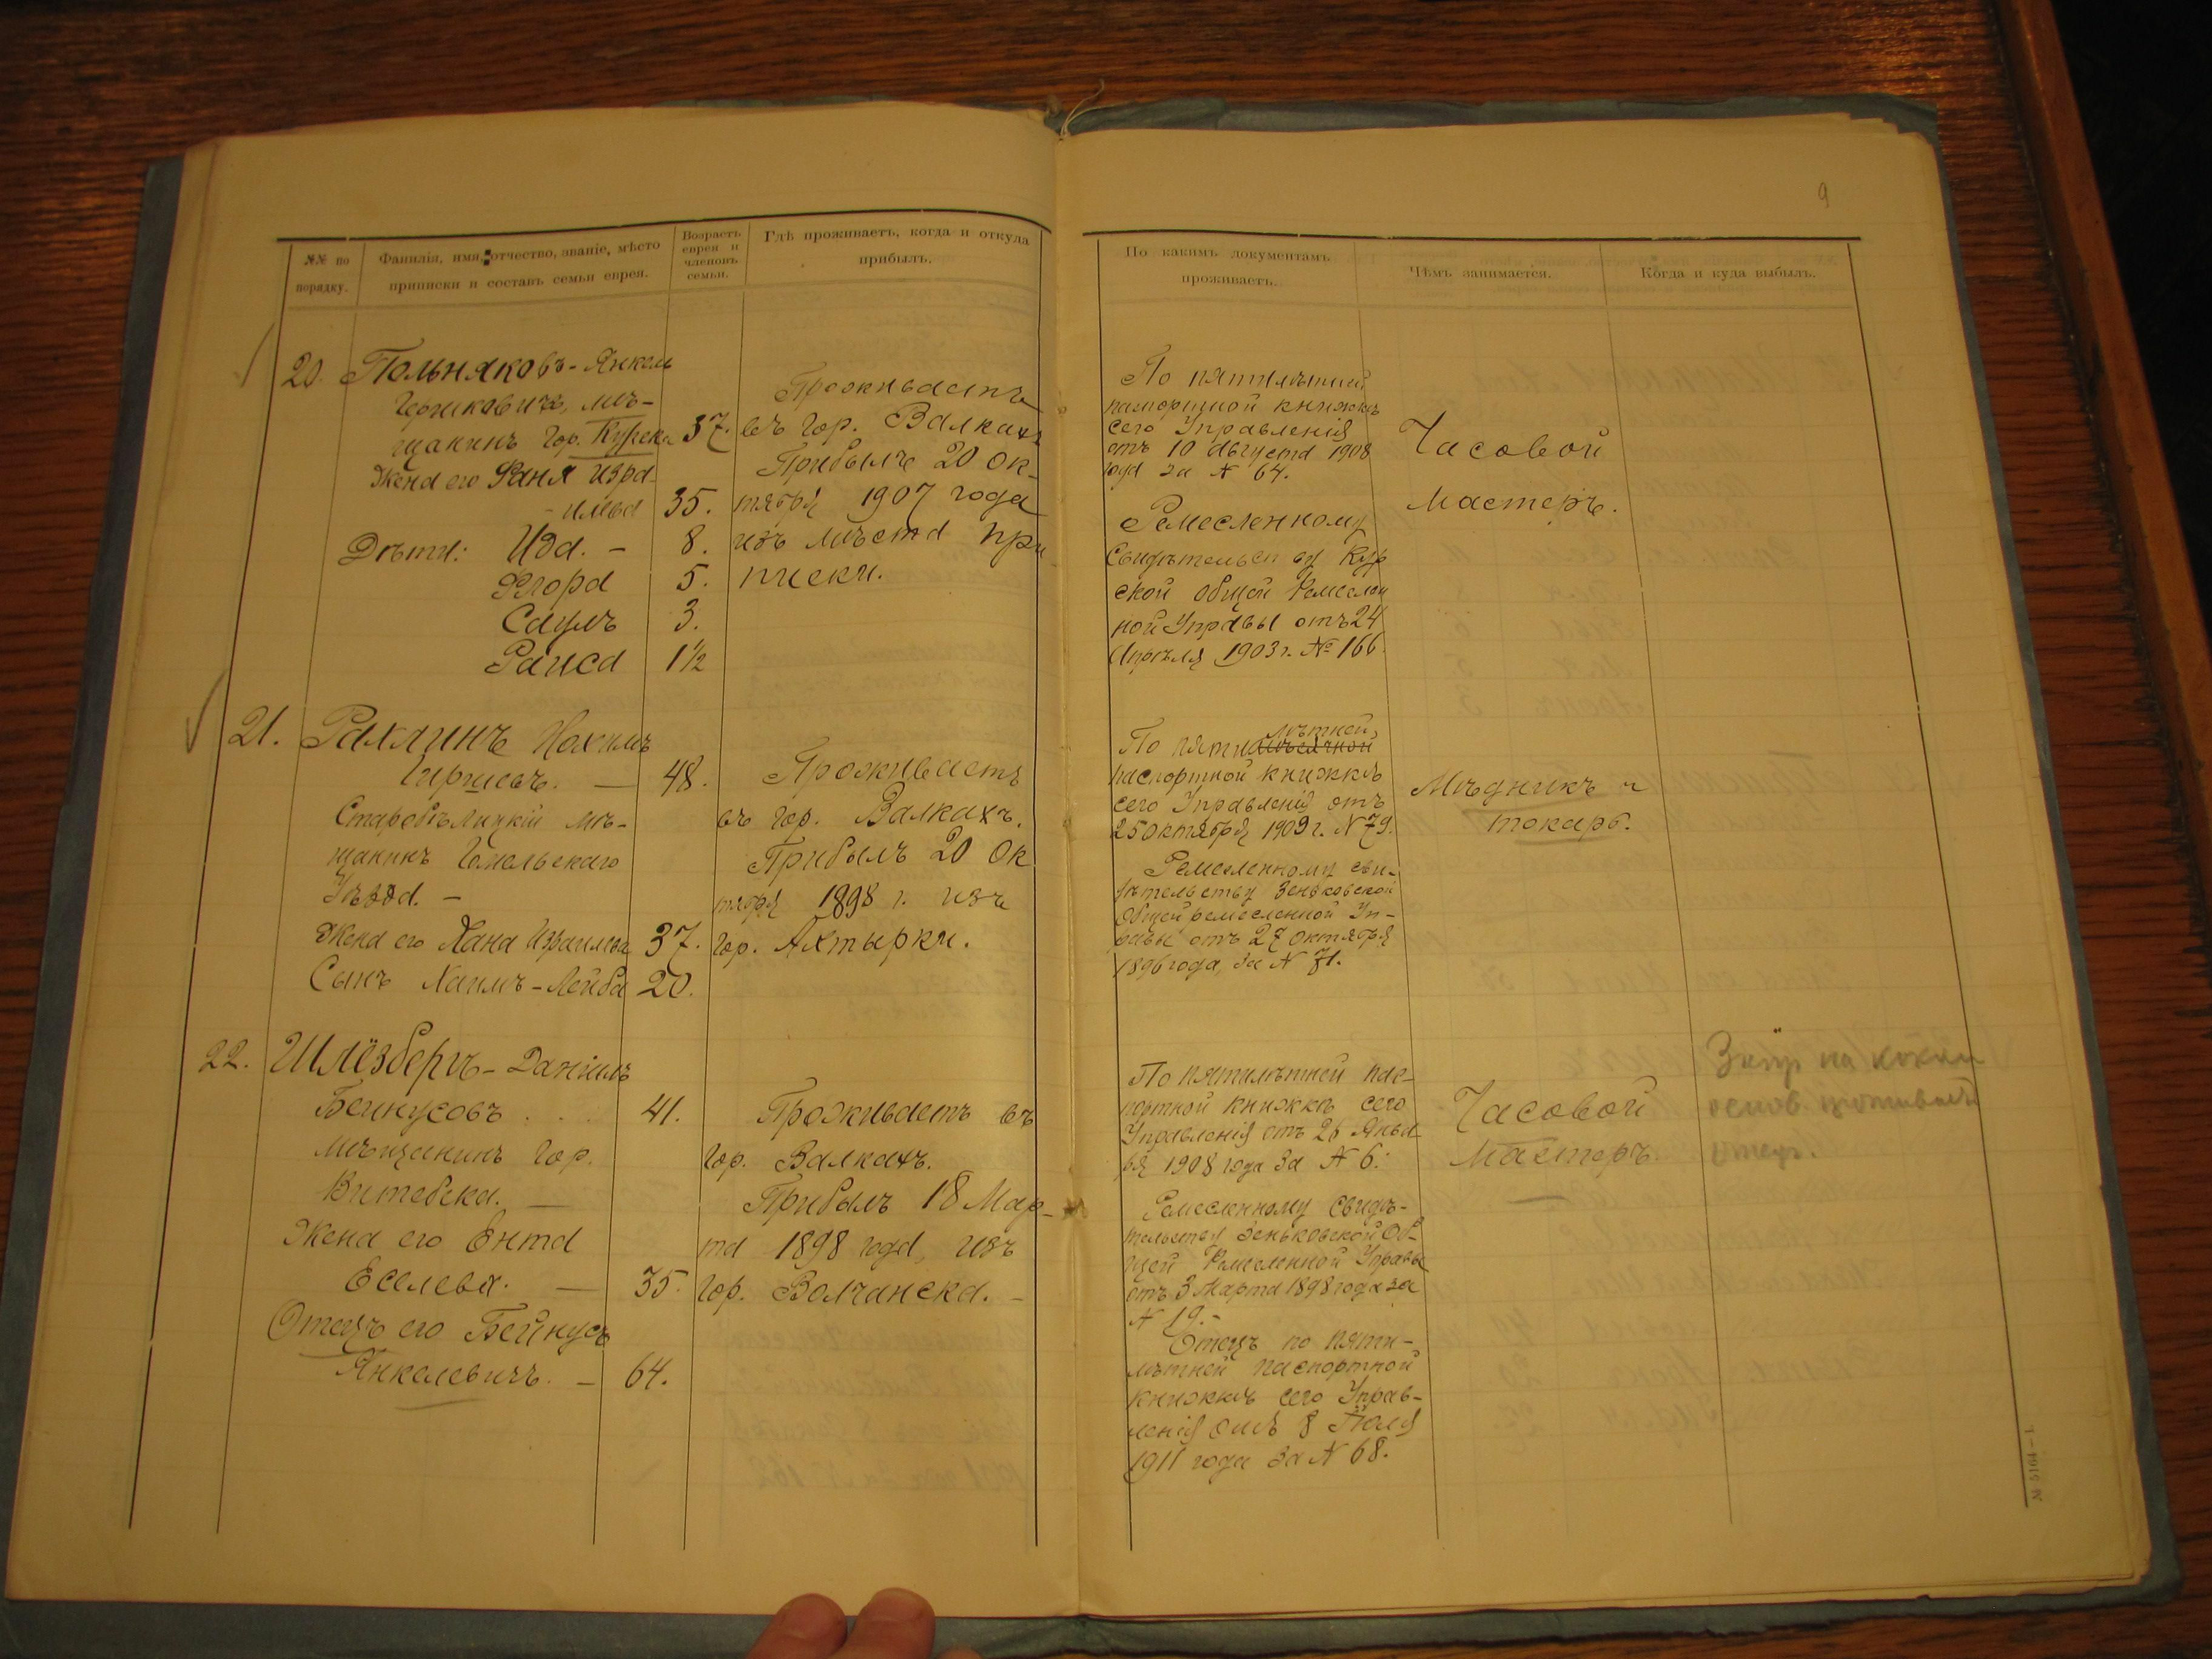 9
№№ по порядку.
Фамилія, имя, отчество, званіе, мѣсто приписки и составъ семьи еврея.
Возрастъ еврея и членовъ семьи.
Гдѣ проживаетъ, когда и откуда прибылъ.
По какимъ документамъ проживаетъ.
Чѣмъ занимается.
Когда и куда выбылъ.
20. Польняковъ-Янкель
Гершковичъ, мѣ-
щанинъ Гор. Курска 37.
Жена его Фаня Изра-
илева 35.
Дѣти: Ида. – 8.
Флора 5.
Саулъ 3.
Раиса 1½
Проживаетъ
въ Гор. Валкахъ
Прибылъ 20 Ок-
тября 1907 года
изъ мѣста при
писки.
По пятилѣтней
паспортной книжкѣ
сего Управленія
отъ 10 Августа 1908
года за № 64.
Ремесленному
Свидѣтельству Кур
ской Общей Ремеслен
ной Управы отъ 24
Апрѣля 1903 г. № 166.
Часовой
Мастеръ.
21. Рахлинъ Нохимъ
Гиршевъ. — 48.
Старобѣлицкій мѣ-
щанинъ Гомельскаго
Уѣзда. –
Жена его Хана Израилева 37.
Сынъ Хаимъ-Лейба 20.
Проживаетъ
въ гор. Валкахъ.
Прибылъ 20 Ок
тября 1898 г. изъ
Гор. Ахтырки.
лѣтней
По пятимѣсячной
паспортной книжкѣ
сего Управленія отъ
25 Октября 1909 г. № 79.
Ремесленному сви-
дѣтельству Зеньковской
Общей ремесленной Уп-
равы отъ 27 Октября
1896 года, за № 71.
Мѣдникъ и
токарь.
22. Шлёзбергъ-Даніилъ
Бейнусовъ 41.
Мѣщанинъ Гор.
Витебска. —
Жена его Ента
Еселева. — 35.
Отецъ его Бейнусъ
Янкелевичъ. – 64.
Проживаетъ въ
Гор. Валкахъ.
Прибылъ 18 Мар-
та 1898 года, изъ
Гор. Волчанска. –
По пятилѣтней пас-
портной книжкѣ сего
Управленія отъ 26 Янва-
ря 1908 года за № 6.
Ремесленному Свидѣ-
тельству Зеньковской Об-
щей Ремесленной Управы
отъ 3 Марта 1898 года за
№ 19.-
Отецъ по пяти-
лѣтней паспортной
книжкѣ сего Управ-
ленія отъ 8 Іюля
1911 года за № 68.
Часовой
Мастеръ.
на каком
основ. проживаетъ
отецъ.
№ 5164–1.